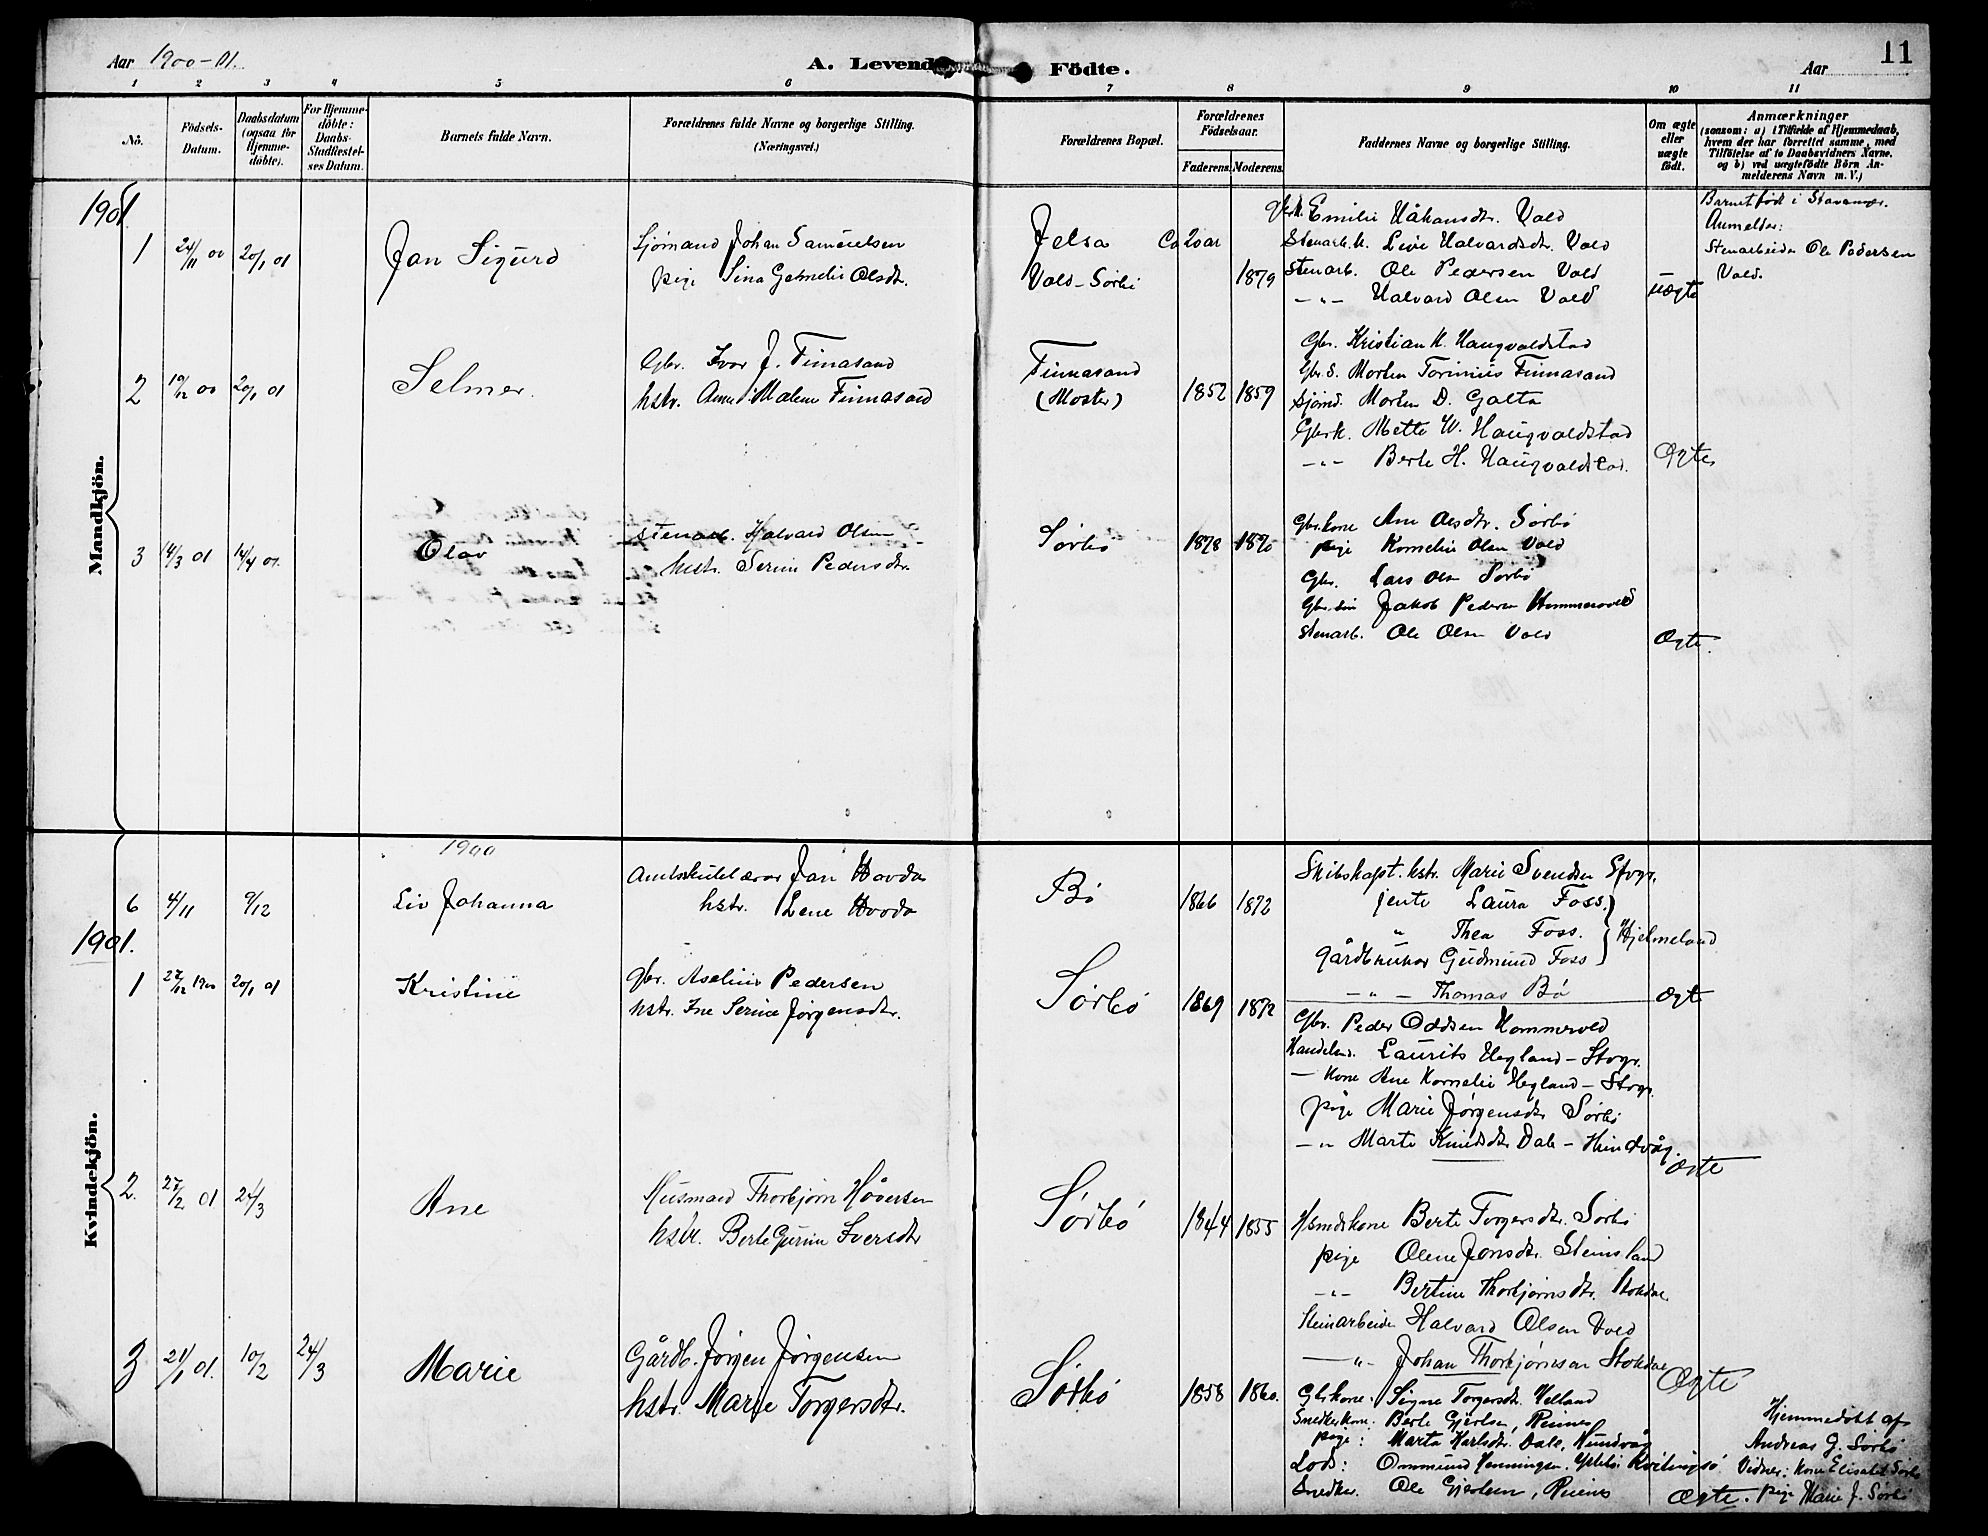 Aar 1900-01.
A. Levende Födte.
Aar
11
1 2 3 4 5 6 7 8 9 10 11
No.
Födsels-Datum.
Daabsdatum (ogsaa for Hjemme-döbte).
For Hjemme-döbte: Daabs-Stadfestel-ses Datum.
Barnets fulde Navn.
Forældrenes fulde Navne og borgerlige Stilling. (Næringsvei.)
Forældrenes Bopæl.
Forældrenes Födselsaar.
Faderens. Moderens.
Faddernes Navne og borgerlige Stilling.
Om ægte eller uægte födt.
Anmærkninger
(saasom: a) i Tilfælde af Hjemmedaab, hvem der har forrettet samme, med Tilföielse af to Daabsvidners Navne, og b) ved uægtefödte Börn An-melderens Navn m. V.)
Mandkjön.
1901.
1 24/11 00 20/1 01 Jan Sigurd
Sjømand Johan Samuelsen
pige Sina Gabrielie Olsdtr.
Jelsa Ca 20 aar
Vold-Sørbø 1879
Emilie Håkansdtr. Vold
Stenarb. k. Live Halvardsdtr. Vold
Stenarb. Ole Pedersen Vold
-"- Halvard Olsen Vold
uægte
Barnet født i Stavanger.
Anmelder:
Stenarbeider Ole Pedersen
Vold.
2 19/12 00 20/1 01 Selmer.
Gbr. Ivar J. Finnasand
hstr. Anne Malene Finnasand
Finnasand
(Moster) 1852 1859
Gbr. Kristian H. Haugvaldstad
Gbr. S. Morten Torinius Finnasand
Sjømd. Morten D. Galta
Gbrk. Mette W. Haugvaldstad
-"- Berte H. Haugvaldstad.
Ægte
3 14/3 01 14/4 01. Olav
Stenarb. Halvard Olsen
hustr. Serine Pedersdtr.
Sørbø 1878 1870
Gbr. kone Ane Olsdtr. Sørbø
pige Kornelie Olsen Vold
Gbr. Lars Olsen Sørbø
Gbr. søn Jakob Pedersen Hammervold
Stenarb. Ole Olsen Vold
Ægte.
Kvindekjön.
1900
6 4/11 9/12 Liv Johanna
Amtsskulelærar Jan Hovda
hstr. Lene Hovda
Bø 1866 1872
Skibskapt. hstr. Marie Svendsen Stvgr.
jente Laura Foss.
" Thea Foss. Hjelmeland
gårdbrukar Gudmund Foss
-"- Thomas Bø
Ægte
1901.
1 27/12 1900 20/1 01 Kristine
Gbr. Aselius Pedersen
hstr. Ine Serine Jørgensdtr.
Sørbø 1869 1872
Gbr. Peder Oddsen Hammervold
Handelsm. Laurits Hegland - Stvgr.
- kone Ane Kornelie Hegland - Stvgr.
pige Marie Jørgensdtr Sørbø
-"- Marte Knudsdtr Dale - Hundvåg.
Ægte
2. 27/2 01 24/3 Ane
Husmand Thorbjørn Håversen
hstr. Berte Gurine Iversdtr
Sørbø 1844 1855
Hsmdskone Berte Torgersdtr. Sørbø
pige Olene Jonsdtr. Steinsland
-"- Bertine Thorbjørnsdtr. Stokdae
Stenarbeider Halvard Olsen Vold
-"- Johan Thorbjørnsen Stokdae
Ægte
3 21/1 01. 10/2 24/3 Marie
Gårdb. Jørgen Jørgensen
hstr. Marte Torgersdtr.
Sørbø 1858 1860.
Gbrkone: Signe Torgersdtr. Helland
Snedker kone: Berte Gjertsen, Reines
pige: Marta Karlsdtr. Dale, Hundvåg
Lods: Ommund Henningsen, Ytrebø Kvitingsø
Snedker. Ole Gjertsen, Reines
Ægte.
Hjemmedøbt af
Andreas G. Sørbø
Vidner: kone Elisabet Sørbø
pige Marie J. Sørbø